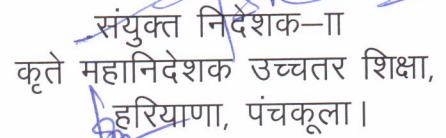 संयुक्त निदेशक–II
कृते महानिदेशक उच्चतर शिक्षा,
हरियाणा, पंचकूला।